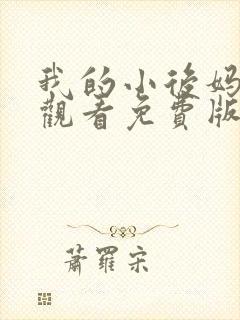 我的小後妈
觀看免費版
蕭羅宋